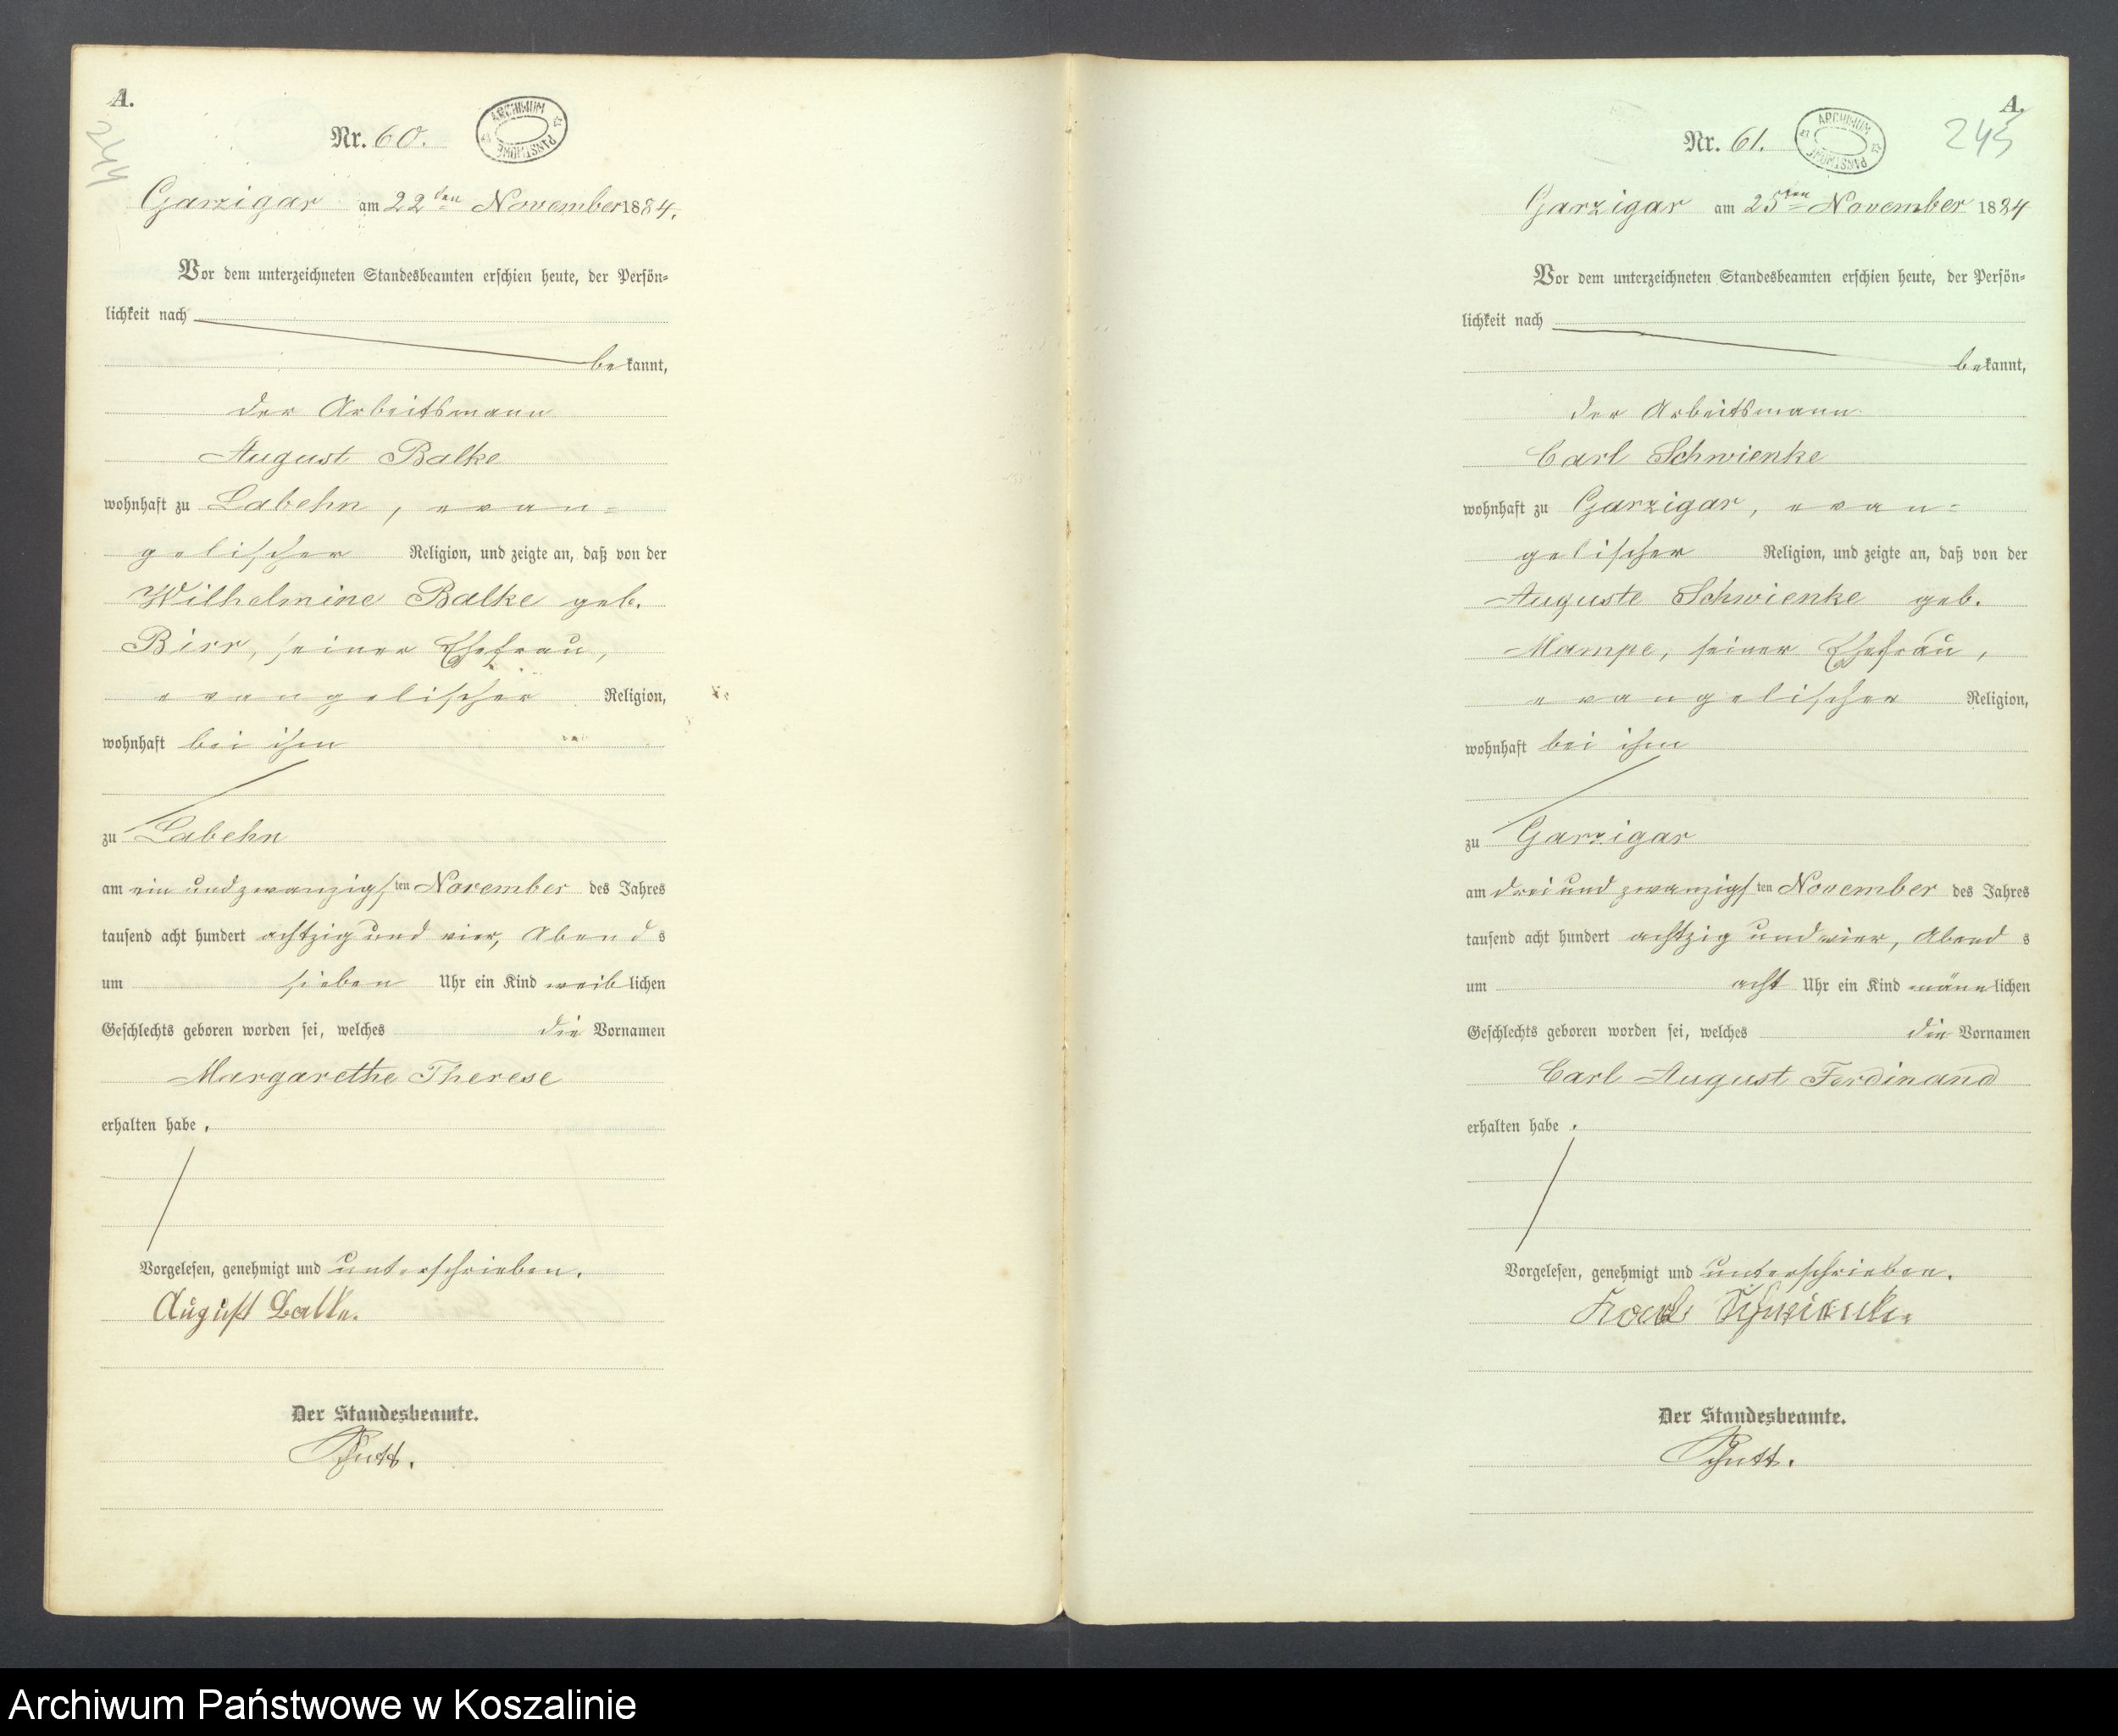 A.
244
Nr. 60.
ARCHIWUM PAŃSTWOWE
Garzigar am 22ten November 1884.
Vor dem unterzeichneten Standesbeamten erschien heute, der Persön-
lichkeit nach
bekannt,
der Arbeitsmann
August Balke
wohnhaft zu Labehn, evan-
gelischer Religion, und zeigte an, daß von der
Wilhelmine Balke geb.
Birr, seiner Ehefrau,
evangelischer Religion,
wohnhaft bei ihm
zu Labehn
am ein und zwanzigsten November des Jahres
tausend acht hundert achtzig und vier, Abends
um sieben Uhr ein Kind weiblichen
Geschlechts geboren worden sei, welches die Vornamen
Margarethe Therese
erhalten habe.
Vorgelesen, genehmigt und unterschrieben.
August Balke.
Der Standesbeamte.
A.
245
Nr. 61.
ARCHIWUM PAŃSTWOWE
Garzigar am 25ten November 1884
Vor dem unterzeichneten Standesbeamten erschien heute, der Persön-
lichkeit nach
bekannt,
der Arbeitsmann
Carl Schwienke
wohnhaft zu Garzigar, evan-
gelischer Religion, und zeigte an, daß von der
Auguste Schwienke geb.
Mampe, seiner Ehefrau,
evangelischer Religion,
wohnhaft bei ihm
zu Garzigar
am drei und zwanzigsten November des Jahres
tausend acht hundert achtzig und vier, Abends
um acht Uhr ein Kind männlichen
Geschlechts geboren worden sei, welches die Vornamen
Carl August Ferdinand
erhalten habe.
Vorgelesen, genehmigt und unterschrieben.
Schwienke.
Der Standesbeamte.
Archiwum Państwowe w Koszalinie